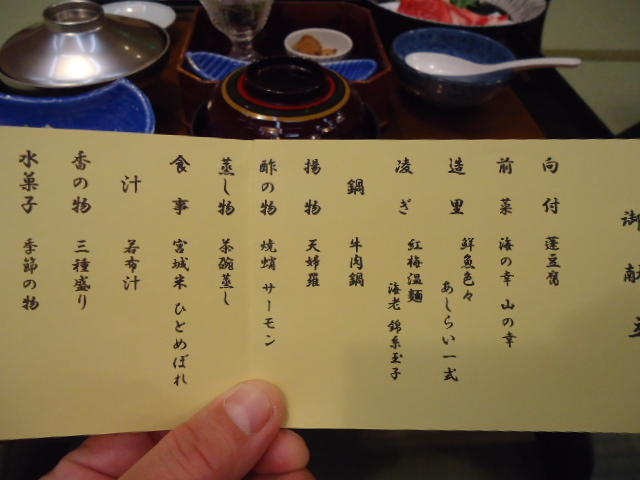 御献立
向付 蓬豆腐
前菜 海の幸 山の幸
造里 鮮魚色々
あしらい一式
凌ぎ 紅梅温麺
海老 錦糸玉子
鍋 牛肉鍋
揚物 天婦羅
酢の物 焼蛸 サーモン
蒸し物 茶碗蒸し
食事 宮城米 ひとめぼれ
汁 若布汁
香の物 三種盛り
水菓子 季節の物